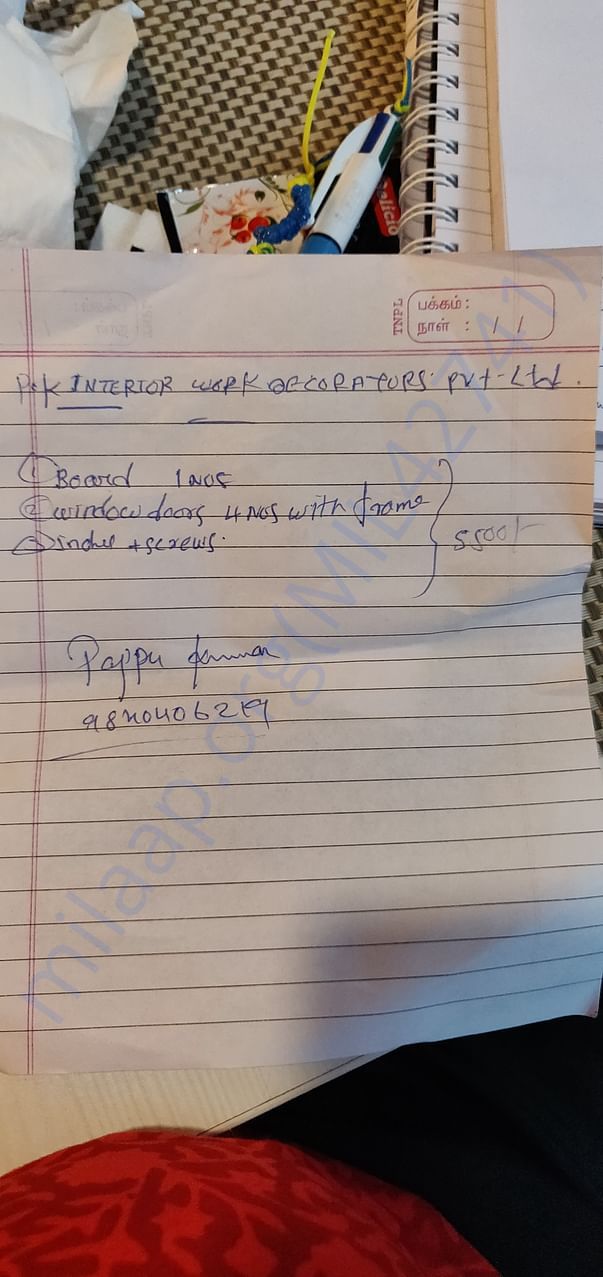 alicio
TNPL
பக்கம் :
நாள் : / /
P&K INTERIOR WORK DECORATORS. Pvt-Ltd.
① Board 1 NOS
② window doors 4 NOS with frame
③ + screws.
5500/-
Pappu
milaap.org(MIL427741)